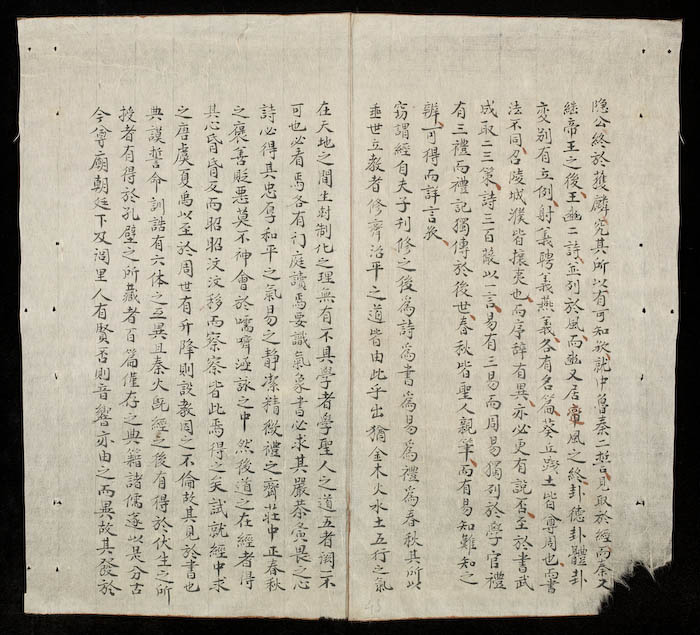 隐公終於獲麟究其所以有可知欤就中魯秦二誓見取於經而秦又
継帝王之後王豳二詩並列於風而豳又居變風之終卦德卦體卦
变別有立例射義聘義燕義各有名篇葵丘踐土皆尊周也而書
法不同召陵城濮皆攘夷也而序辞有異亦必更有說否至於書武
成取二三策詩三百蔽以一言易有三易而周易獨列於學官禮
有三禮而禮記獨傳於後世春秋皆聖人親筆而有易知難知之
辨可得而詳言欤
窃謂經自夫子刊修之後為詩為書為易為禮為春秋其所以
垂世立教者修齊治平之道皆由此乎出猶金木火水土五行之气
在天地之間生尅制化之理無有不具學者學聖人之道五者闕一不
可也必看焉各有门庭讀焉要識氣象書必求其嚴恭寅畏之心
詩必得其忠厚和平之氣易之静潔精微禮之齊莊中正春秋
之褒善貶惡莫不神會於嚅嚌涵詠之中然後道之在經者得
其心昏昏反而昭昭汶汶移而察察皆此焉得之矣試就經中求
之唐虞夏禹以至於周世有升降則設教因之不倫故其見於書也
典謨誓命訓誥有六体之互異且秦火既經之後有得於伏生之所
授者有得於孔壁之所藏者百篇僅存之典籍諸儒遂以是分古
今尊廟朝廷下及閭里人有賢否則音響亦由之而異故其發於